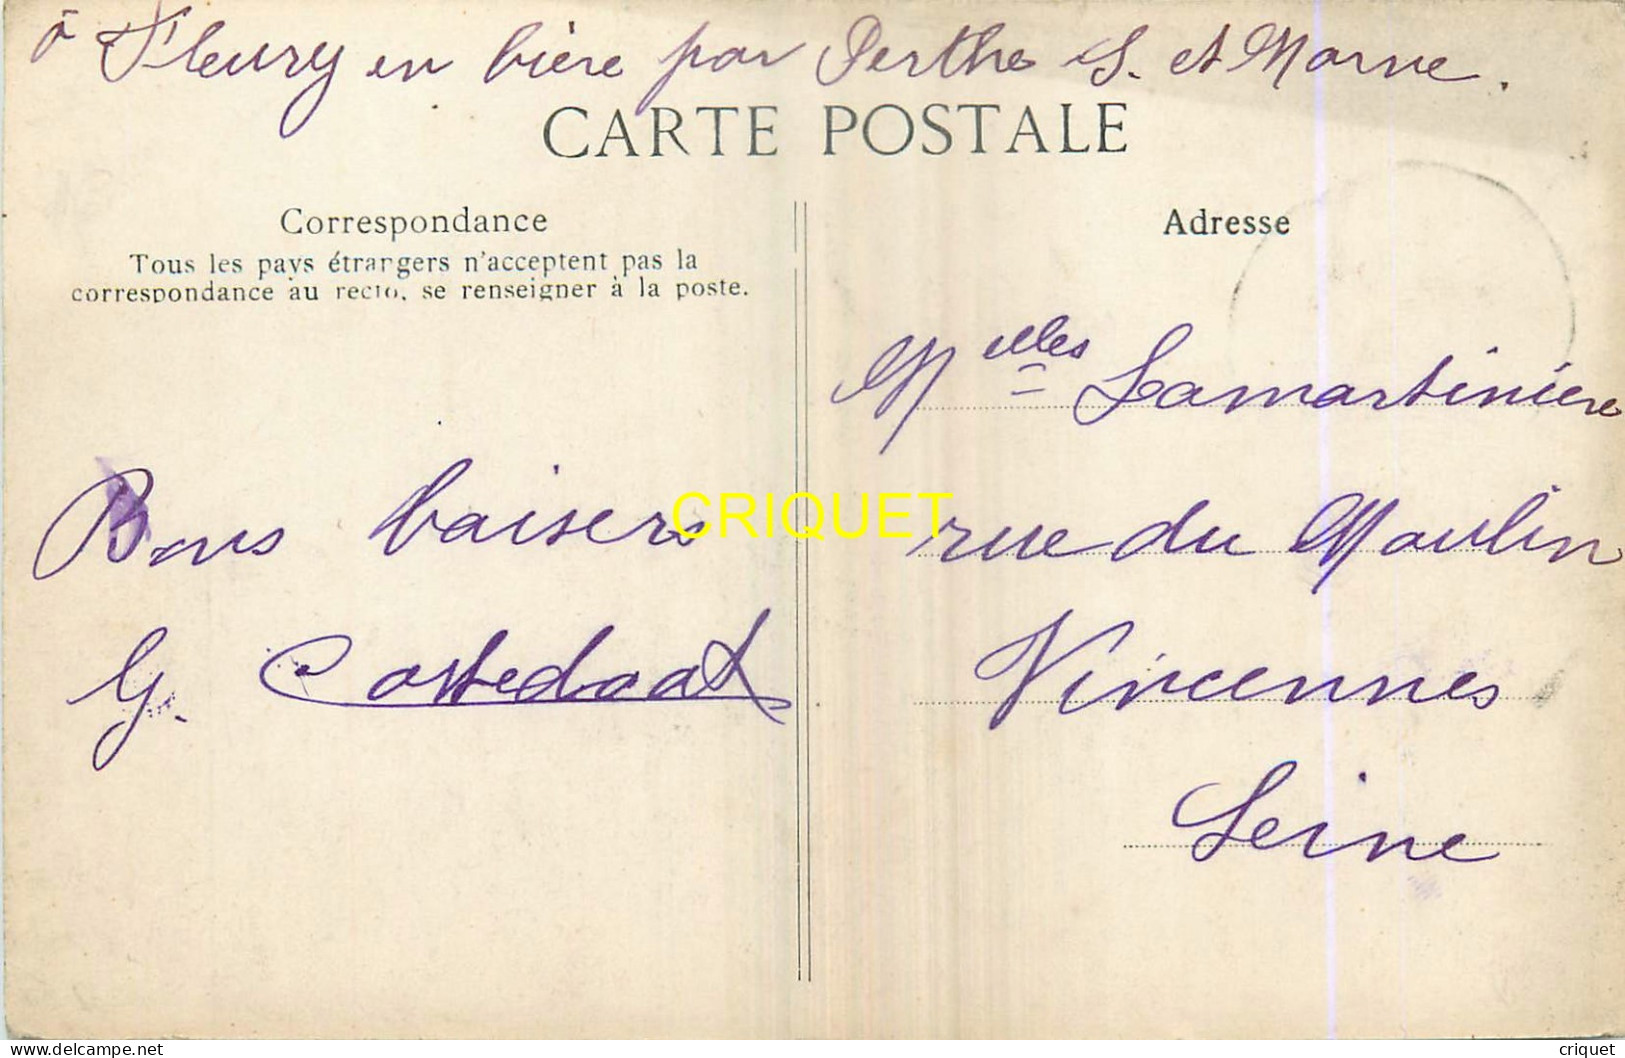 à Fleury en bière par Perthe S. et Marne.
CARTE POSTALE
Correspondance
Tous les pays étrangers n'acceptent pas la
correspondance au recto, se renseigner à la poste.
Bons baisers
G.
Adresse
Melles Lamartinière
rue du Moulin
Vincennes
Seine
CRIQUET
delcampe.net
criquet